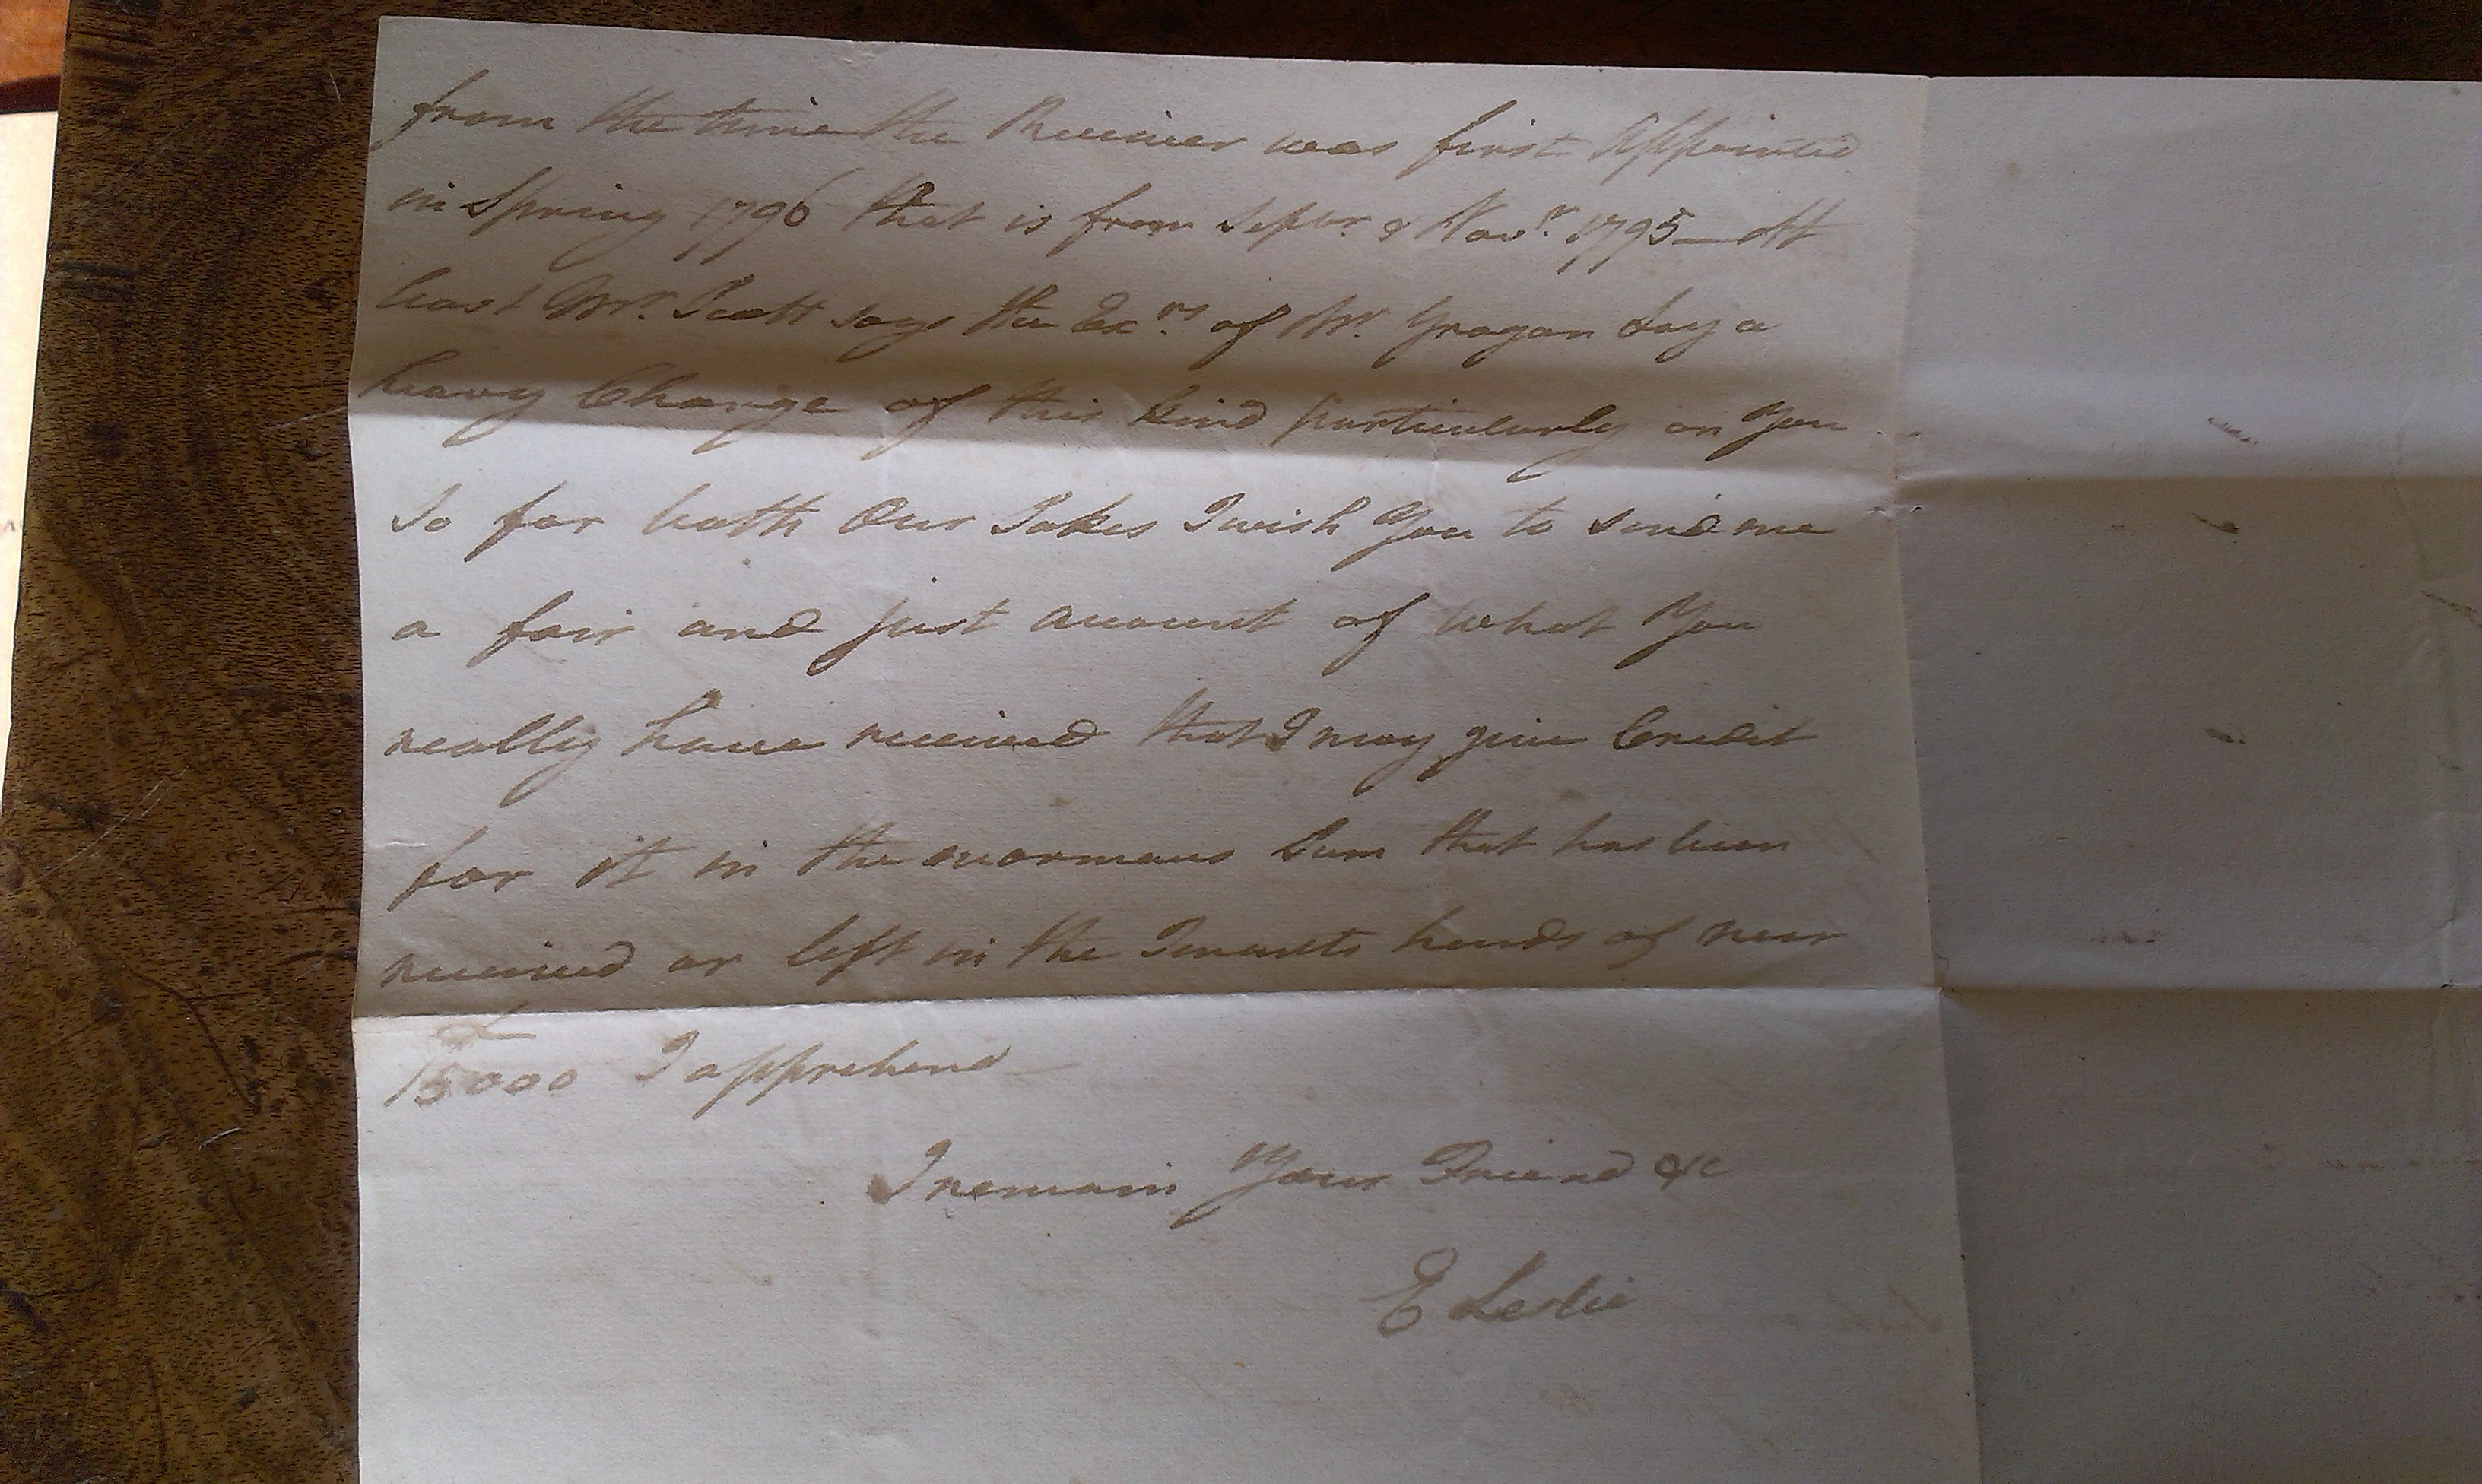 from the time the Receiver was first Appointed
in Spring 1796 that is from Septr. & Novr. 1795 — At
least Mr. Scott says the Exrs. of Mr. Grogan Lay a
heavy Charge of this kind particularly on You
So for both Our Sakes I wish You to send me
a fair and just account of what You
really have received that I may give Credit
for it in the enormous Sum that has been
received or left in the Tenants hands of near
£
15000 I apprehend —
I remain Your Friend &c
E Leslie